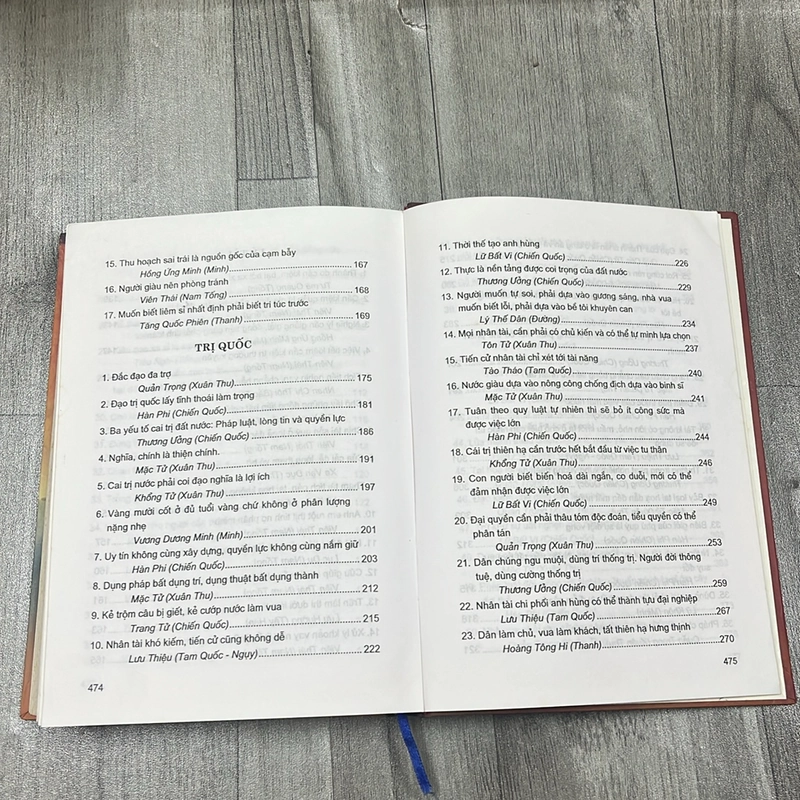 15. Thu hoạch sai trái là nguồn gốc của cạm bẫy
Hồng Ứng Minh (Minh)..........167
16. Người giàu nên phòng tránh
Viên Thái (Nam Tống)..........168
17. Muốn biết liêm sỉ nhất định phải biết tri túc trước
Tăng Quốc Phiên (Thanh)..........169
TRỊ QUỐC
1. Đắc đạo đa trợ
Quản Trọng (Xuân Thu)..........175
2. Đạo trị quốc lấy tĩnh thoái làm trọng
Hàn Phi (Chiến Quốc)..........181
3. Ba yếu tố cai trị đất nước: Pháp luật, lòng tin và quyền lực
Thương Ưởng (Chiến Quốc)..........186
4. Nghĩa, chính là thiện chính.
Mặc Tử (Xuân Thu)..........191
5. Cai trị nước phải coi đạo nghĩa là lợi ích
Khổng Tử (Xuân Thu)..........197
6. Vàng mười cốt ở đủ tuổi vàng chứ không ở phân lượng
nặng nhẹ
Vương Dương Minh (Minh)..........201
7. Uy tín không cùng xây dựng, quyền lực không cùng nắm giữ
Hàn Phi (Chiến Quốc)..........203
8. Dụng pháp bất dụng trí, dụng thuật bất dụng thành
Mặc Tử (Xuân Thu)..........212
9. Kẻ trộm câu bị giết, kẻ cướp nước làm vua
Trang Tử (Chiến Quốc)..........215
10. Nhân tài khó kiếm, tiến cử cũng không dễ
Lưu Thiệu (Tam Quốc - Ngụy)..........222
474
11. Thời thế tạo anh hùng
Lữ Bất Vi (Chiến Quốc)..........226
12. Thực là nền tảng được coi trọng của đất nước
Thương Ưởng (Chiến Quốc)..........229
13. Người muốn tự soi, phải dựa vào gương sáng, nhà vua
muốn biết lỗi, phải dựa vào bề tôi khuyên can
Lý Thế Dân (Đường)..........234
14. Mọi nhân tài, cần phải có chủ kiến và có thể tự mình lựa chọn
Tôn Tử (Xuân Thu)..........237
15. Tiến cử nhân tài chỉ xét tới tài năng
Tào Tháo (Tam Quốc)..........240
16. Nước giàu dựa vào nông công chống địch dựa vào binh sĩ
Mặc Tử (Xuân Thu)..........241
17. Tuân theo quy luật tự nhiên thì sẽ bỏ ít công sức mà
được việc lớn
Hàn Phi (Chiến Quốc)..........244
18. Cái trị thiên hạ cần trước hết bắt đầu từ việc tu thân
Khổng Tử (Xuân Thu)..........246
19. Con người biết biến hoá dài ngắn, co duỗi, mới có thể
đảm nhận được việc lớn
Lữ Bất Vi (Chiến Quốc)..........249
20. Đại quyền cần phải thâu tóm độc đoán, tiểu quyền có thể
phân tán
Quản Trọng (Xuân Thu)..........253
21. Dân chúng ngu muội, dùng trí thống trị. Người đời thông
tuệ, dùng cường thống trị
Thương Ưởng (Chiến Quốc)..........259
22. Nhân tài chi phối anh hùng có thể thành tựu đại nghiệp
Lưu Thiệu (Tam Quốc)..........267
23. Dân làm chủ, vua làm khách, tất thiên hạ hưng thịnh
Hoàng Tông Hi (Thanh)..........270
475